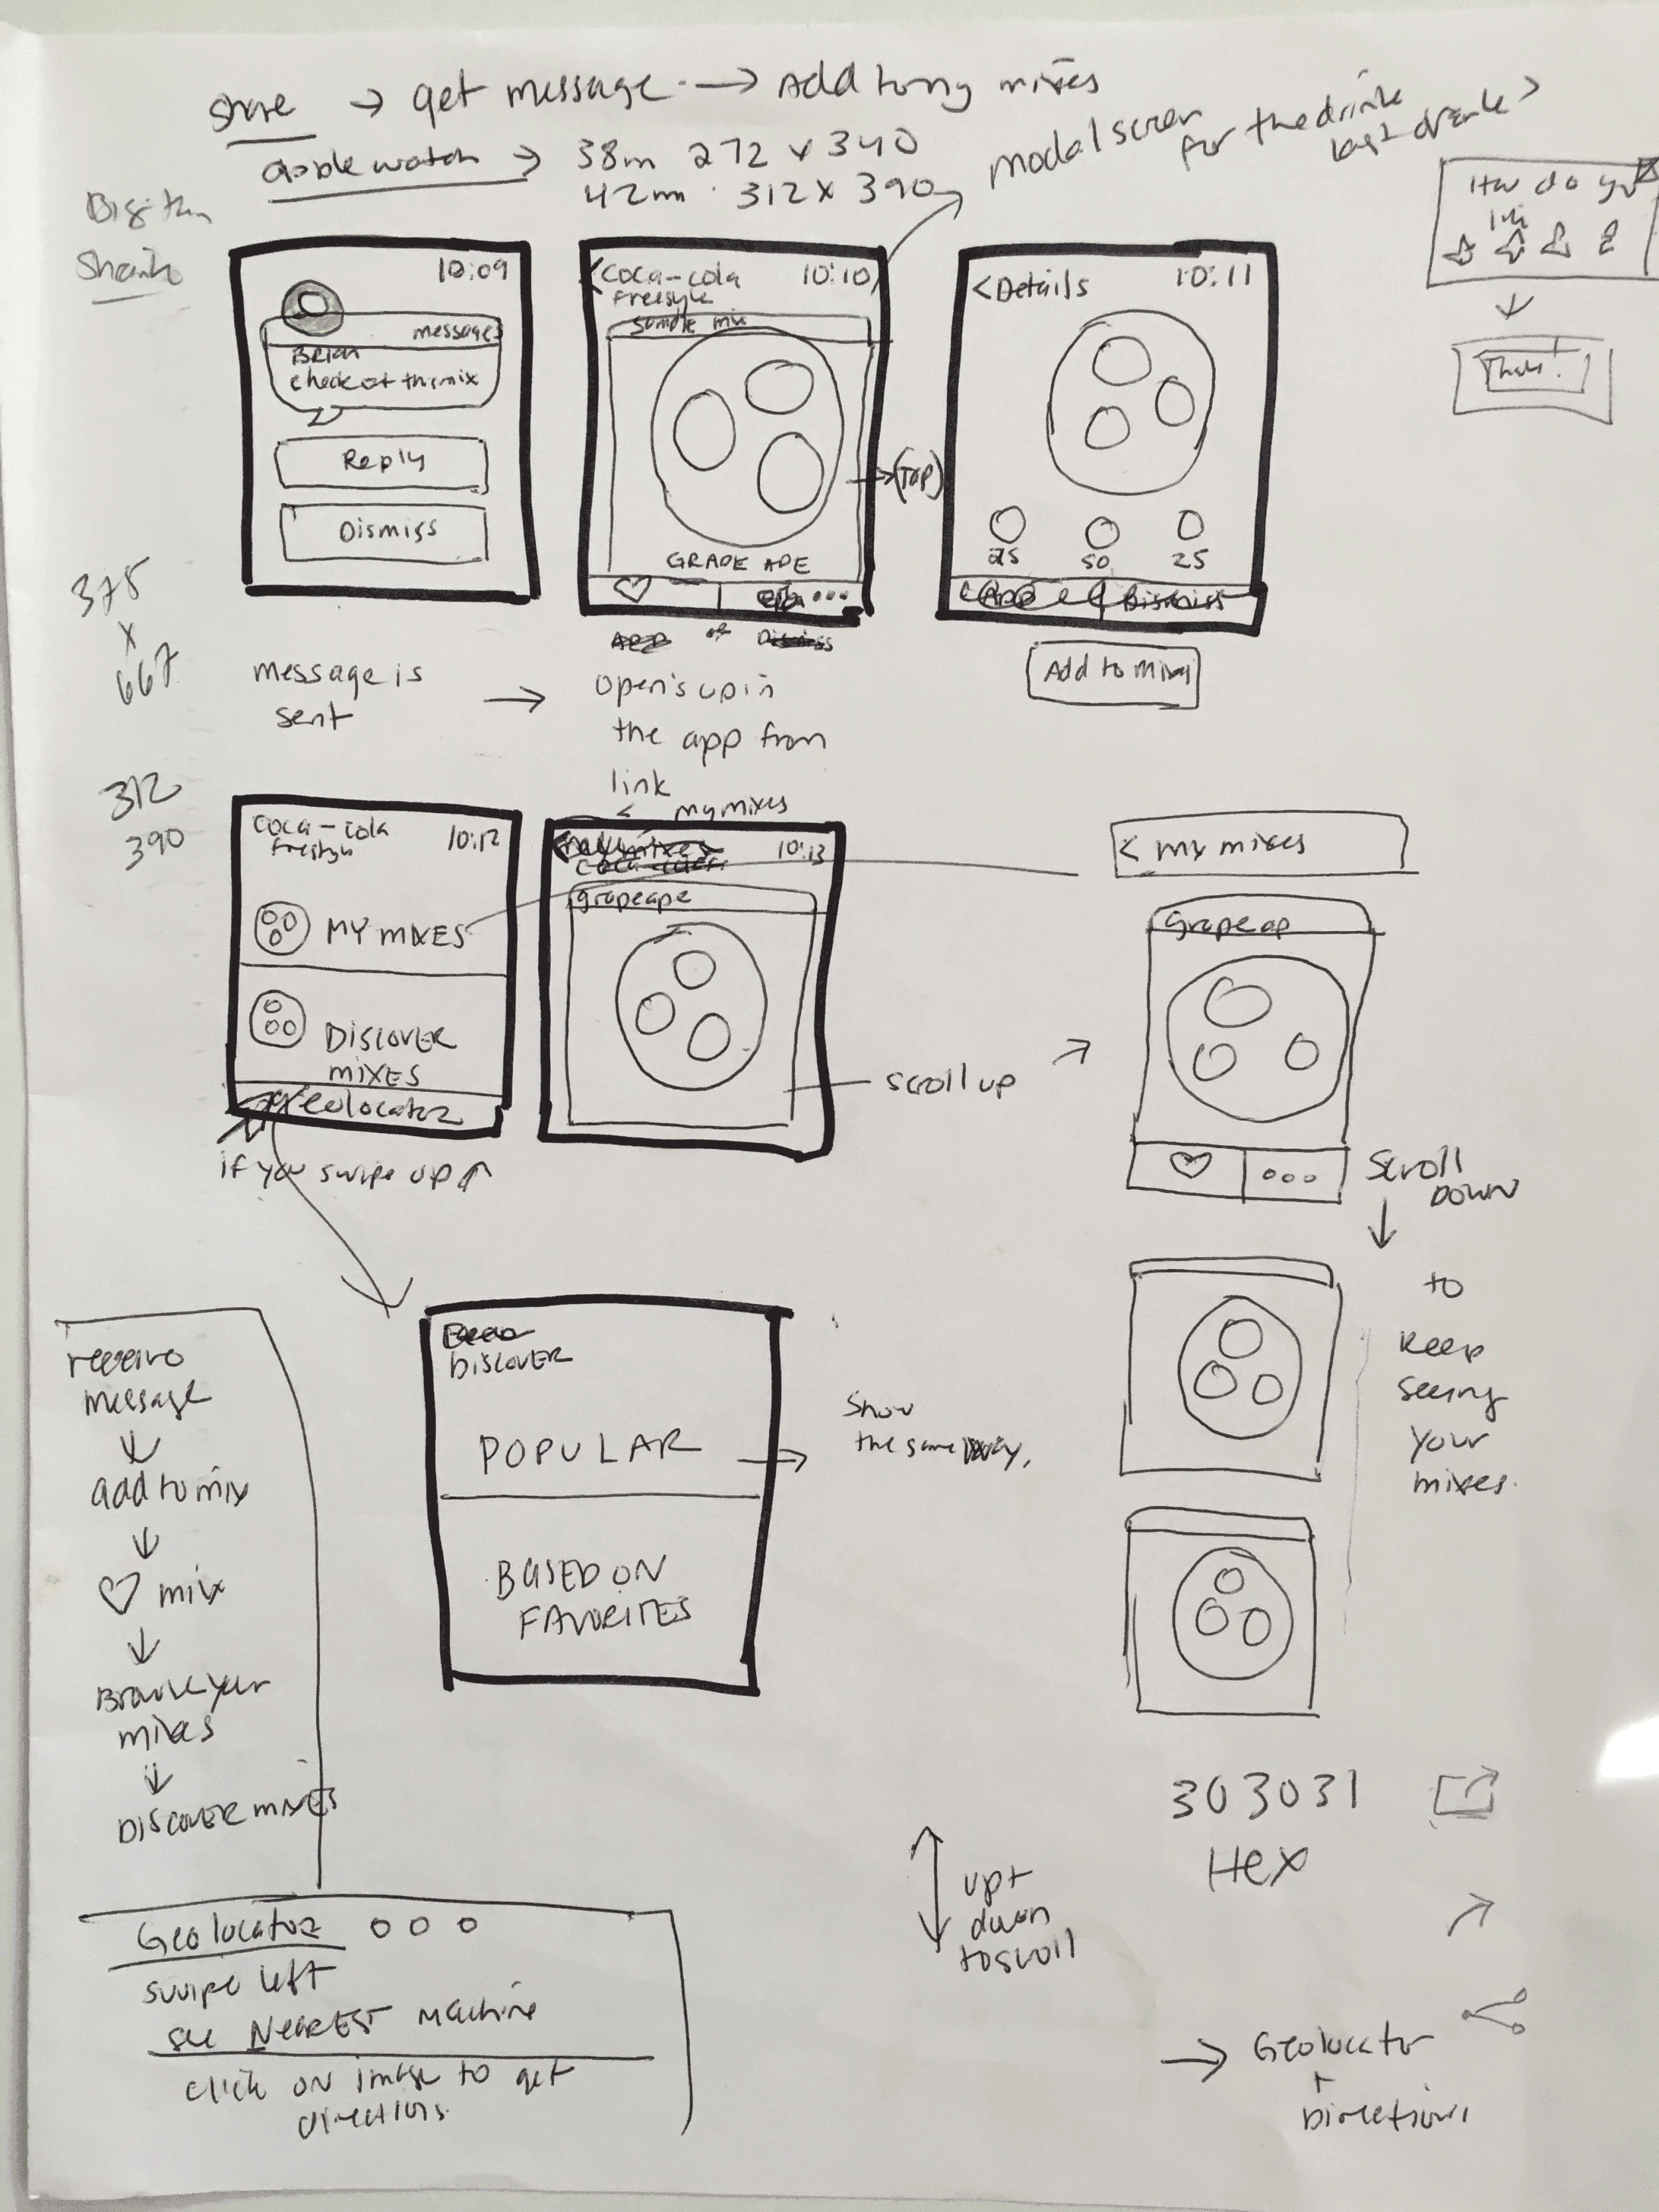 share → get message → Add to my mixes
apple watch → 38m 272 x 340
42mm 312 x 390
modal screen
for the drink
last drank >
How do you
10:09
messages
Brian
check out this mix
Reply
Dismiss
<coca-cola 10:10
Freestyle
sample mix
GRAPE APE
♡
→(Tap)
<Details 10:11
25 50 25
Dismiss
Add to mixes
375
x
667
message is
sent
→
open's up in
the app from
link
312
390
coca-cola 10:12
freestyle
MY MIXES
DISCOVER
MIXES
geolocator
if you swipe up ↑
< my mixes
10:13
grapeape
scroll up
< my mixes
Grapeap
♡
scroll
DOWN
↓
to
keep
seeing
your
mixes.
DISCOVER
POPULAR →
BASED ON
FAVORITES
Show
the same way.
receive
message
↓
add to mix
↓
♡ mix
↓
Browse your
mixes
↓
DISCOVER MIXES
303031
Hex
up +
down
to scroll
Geolocator
swipe left
see NEAREST machine
click on image to get
directions.
→ Geolocator
+
Directions